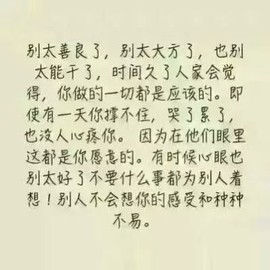 别太善良了，别太大方了，也别
太能干了，时间久了人家会觉
得，你做的一切都是应该的。即
使有一天你撑不住，哭了累了，
也没人心疼你。因为在他们眼里
这都是你愿意的。有时候心眼也
别太好了不要什么事都为别人着
想！别人不会想你的感受和种种
不易。